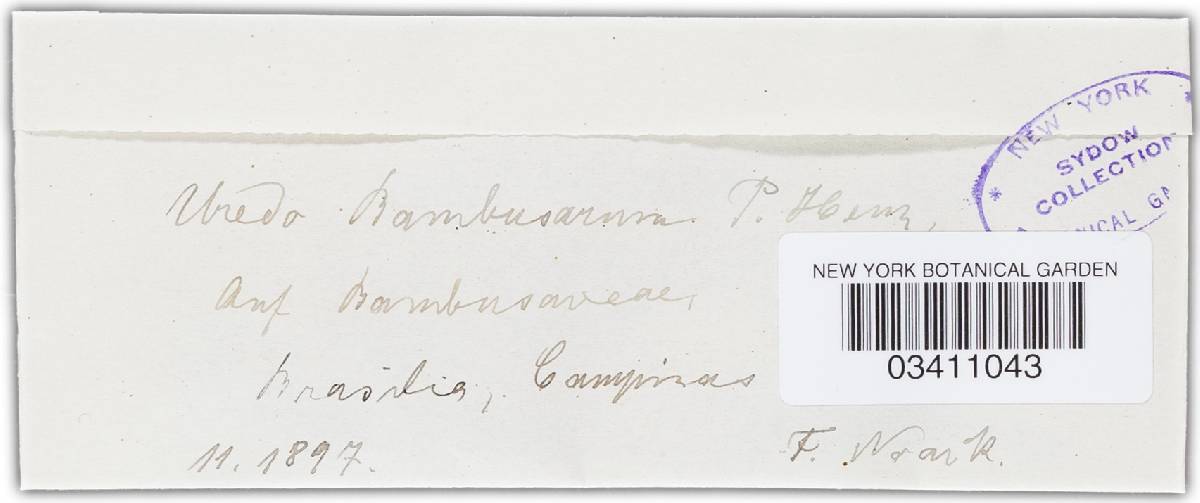 * NEW YORK *
SYDOW
COLLECTION
NICAL GA
Uredo Bambusarum P. Henn,
NEW YORK BOTANICAL GARDEN
03411043
Auf Bambusaveae,
Brasilia, Campinas
11. 1897.
F. Noack.